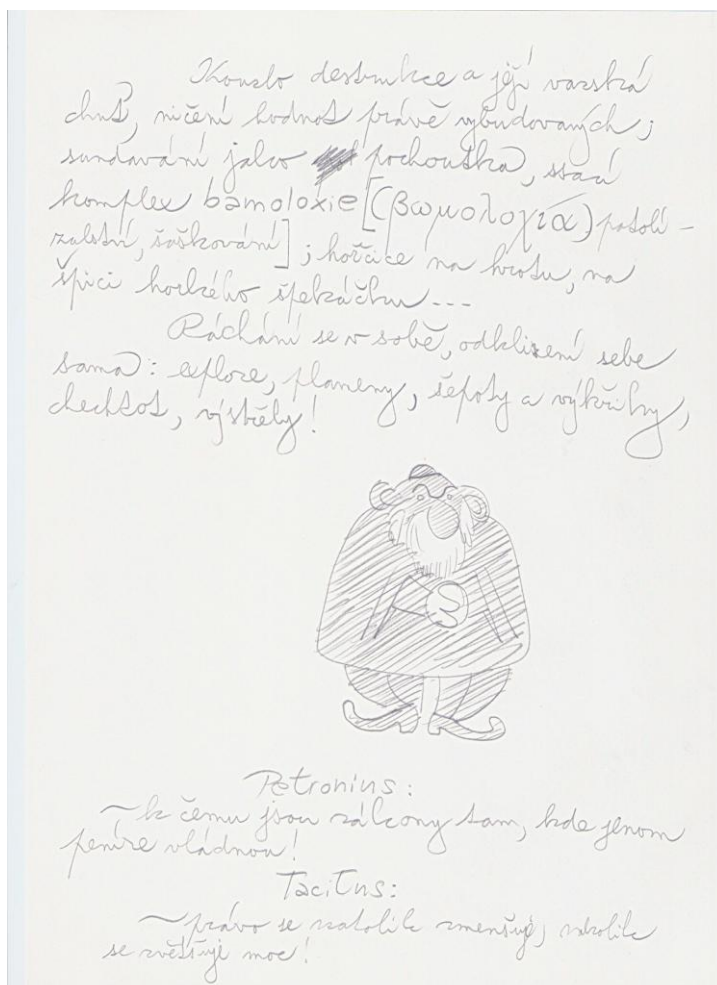 Kouzlo destrukce a její vazská
chuť, ničení hodnot právě vybudovaných;
sundavání jako pochoutka, ssací
komplex bamoloxie [(βωμολοχία) patolí-
zalství, šaškování]; hořčice na hrotu, na
špici horkého špekáčku---
Ráchání se v sobě, odklizení sebe
sama: exploze, plameny, šepoty a výkřiky,
chechtot, výstřely!
Petronius:
~ k čemu jsou zákony tam, kde jenom
peníze vládnou!
Tacitus:
~ právo se natolik zmenšuje, nakolik
se zvětšuje moc!